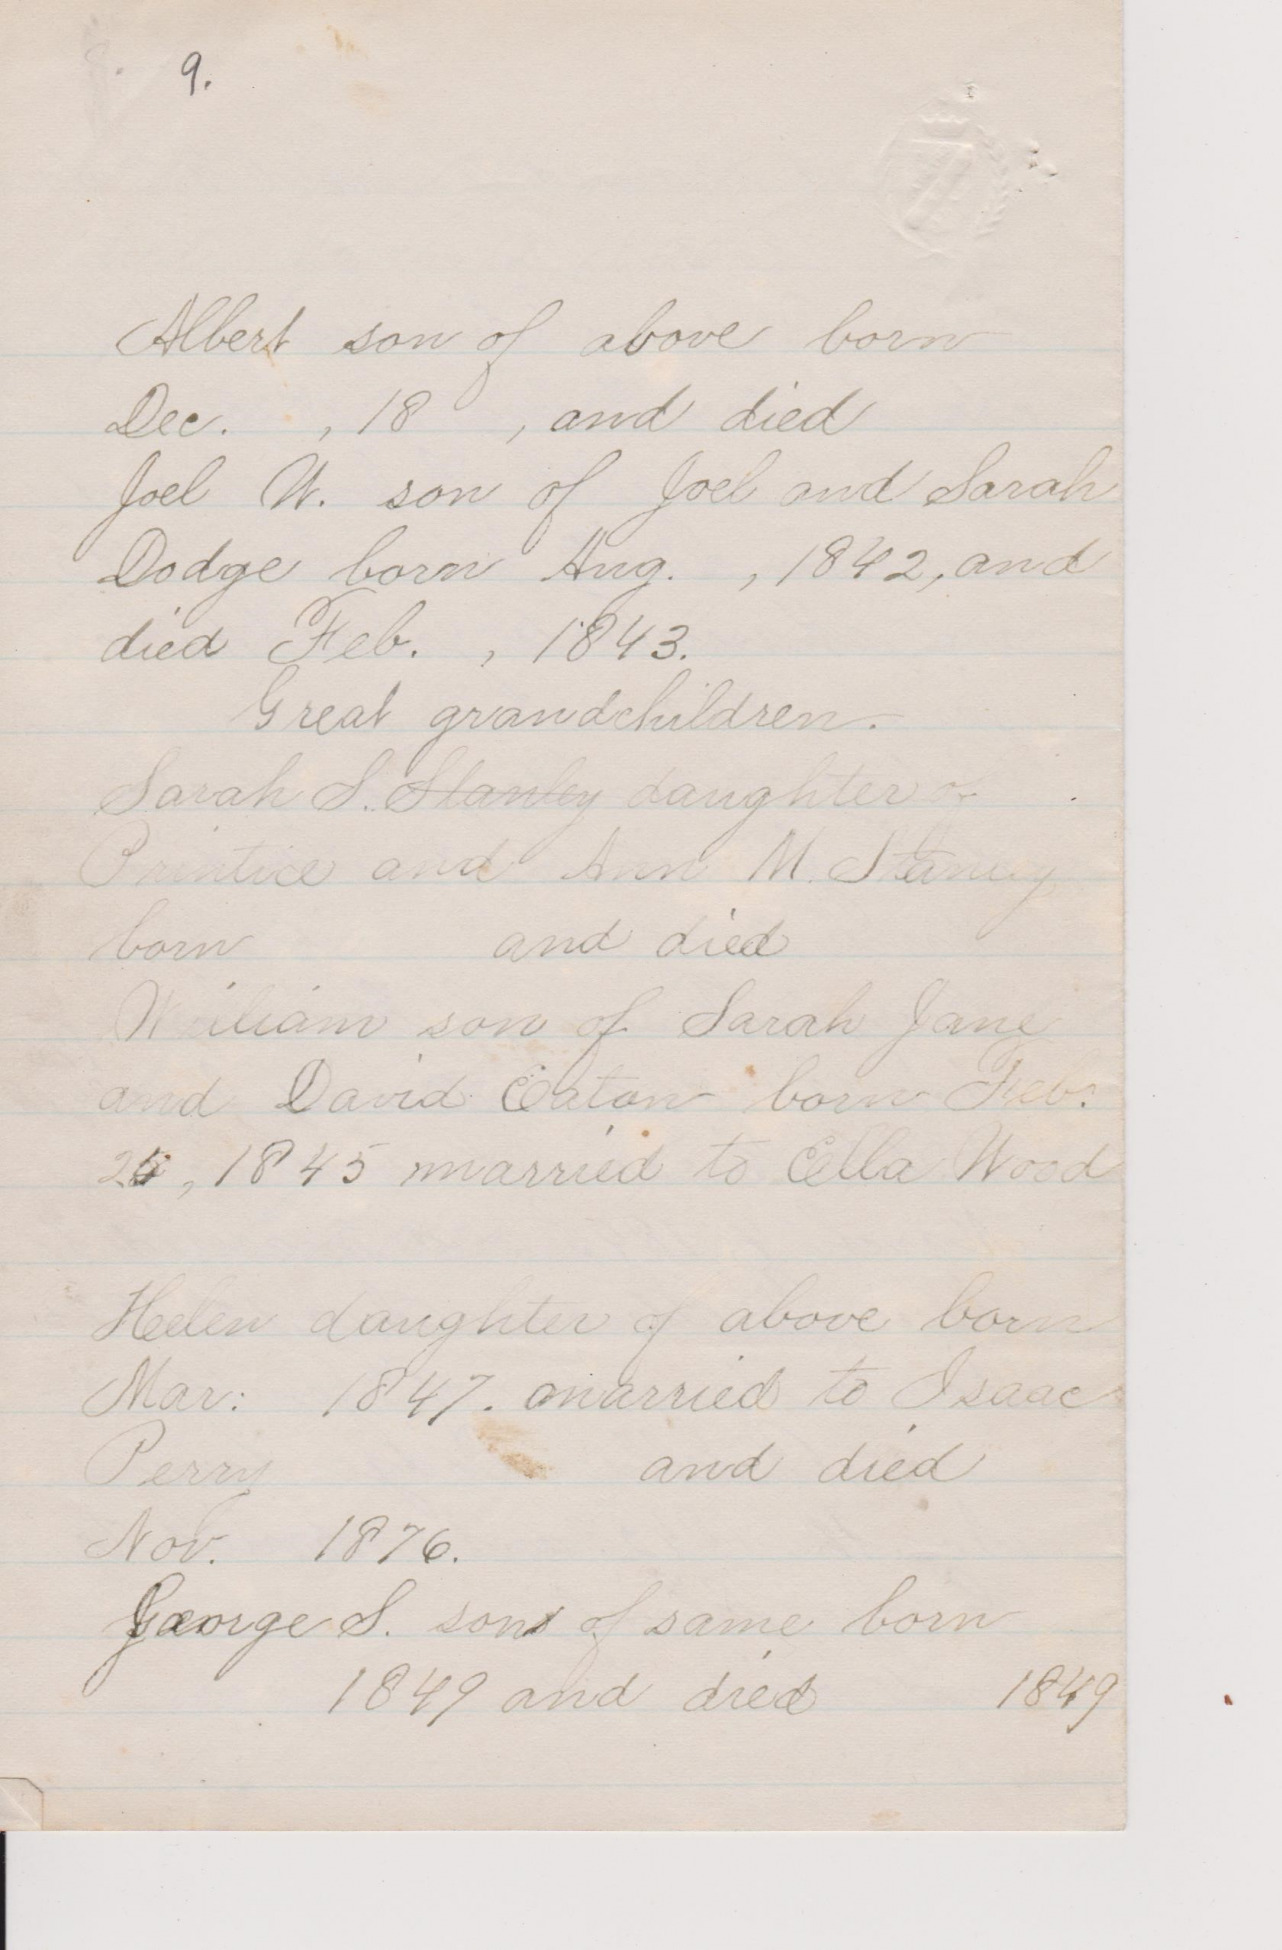 9.
Albert son of above born
Dec. , 18 , and died
Joel W. son of Joel and Sarah
Dodge born Aug. , 1842, and
died Feb. , 1843.
Great grandchildren.
Sarah S. Stanley daughter of
Printice and Ann M. Stanley
born and died
William son of Sarah Jane
and David Eaton born Feb.
, 1845 married to Ella Wood
Helen daughter of above born
Mar: 1847. married to Isaac
Perry and died
Nov. 1876.
George S. son of same born
1849 and died 1849